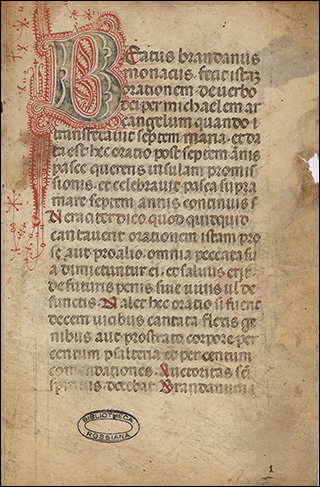 Beatus brandanus
monacus. fecit istam
orationem. de uerbo
dei per michaelem ar
cangelum quando i
transfretauit septem maria. et da
ta est hec oratio post septem annis
pasce querens insulam promis
sionis. et celebrauit pasca supra
mare septem annis continuis
Veraciter dico quod quitquid
cantauerit orationem istam pro
se aut pro alio. omnia peccata su
a dimictuntur ei. et saluus erit.
de futuris penis siue uiuis uel de
functis. Valet hec oratio si fuerit
decem uicibus cantata flexis ge
nibus aut prostrato corpore per
centum psalteria et per centum
comendationes. Auctoritas
spiritus. docebat Brandanum
BIBLIOTHECA
ROSSIANA
1